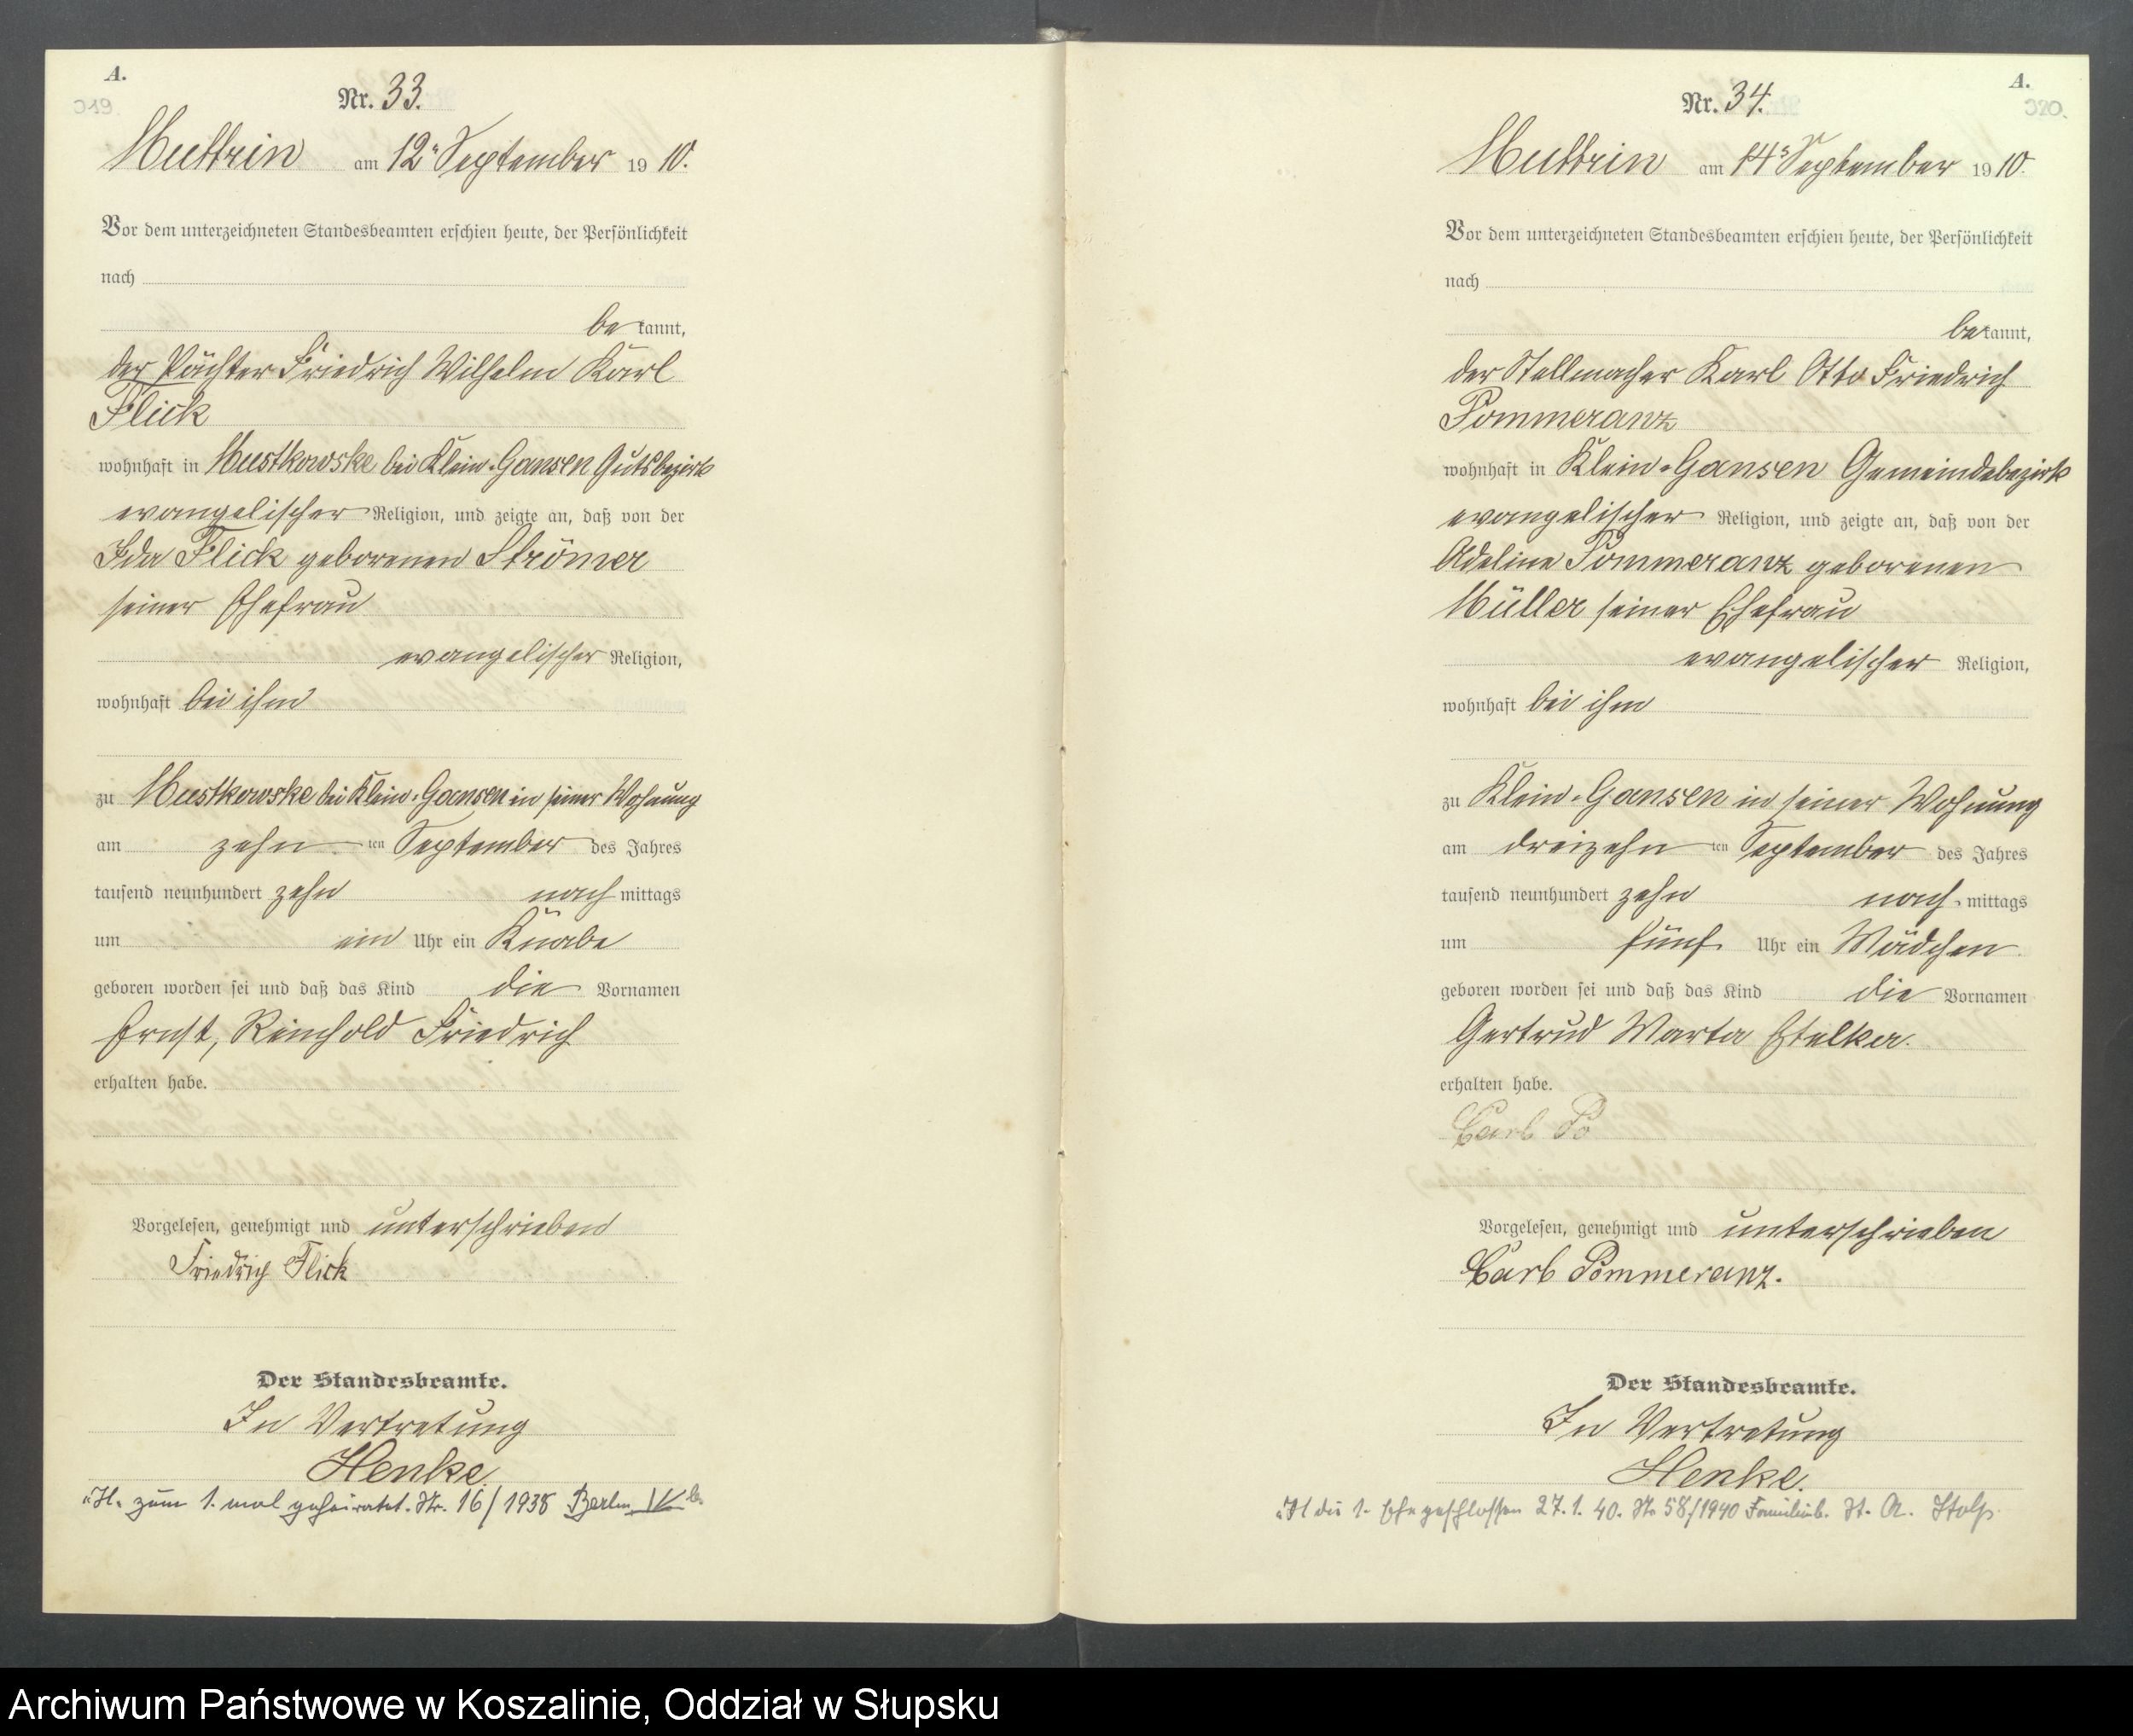 A.
319.
Nr. 33.
Muttrin am 12ⁿ September 1910.
Vor dem unterzeichneten Standesbeamten erschien heute, der Persönlichkeit
nach
bekannt,
der Pächter Friedrich Wilhelm Karl
Flick
wohnhaft in Mustkowske bei Klein-Gansen Gutsbezirk
evangelischer Religion, und zeigte an, daß von der
Ida Flick geborenen Strömer
seiner Ehefrau
evangelischer Religion,
wohnhaft bei ihm
zu Mustkowske bei Klein-Gansen in seiner Wohnung
am zehnten September des Jahres
tausend neunhundert zehn nachmittags
um ein Uhr ein Knabe
geboren worden sei und daß das Kind die Vornamen
Ernst, Reinhold Friedrich
erhalten habe.
Vorgelesen, genehmigt und unterschrieben
Friedrich Flick
Der Standesbeamte.
In Vertretung
Henke.
zum 1. mal geheiratet. Nr. 16/1938 Berlin
A.
320.
Nr. 34.
Muttrin am 14ᵗ September 1910.
Vor dem unterzeichneten Standesbeamten erschien heute, der Persönlichkeit
nach
bekannt,
der Stellmacher Karl Otto Friedrich
Pommeranz
wohnhaft in Klein-Gansen Gemeindebezirk
evangelischer Religion, und zeigte an, daß von der
Adeline Pommeranz geborenen
Müller seiner Ehefrau
evangelischer Religion,
wohnhaft bei ihm
zu Klein-Gansen in seiner Wohnung
am dreizehnten September des Jahres
tausend neunhundert zehn nachmittags
um fünf Uhr ein Mädchen
geboren worden sei und daß das Kind die Vornamen
Gertrud Marta
erhalten habe.
Carl Po
Vorgelesen, genehmigt und unterschrieben
Carl Pommeranz.
Der Standesbeamte.
In Vertretung
Henke.
die 1. Ehe geschlossen 27.1.40. Nr. 58/1940 Familienb. St. A. Stolp.
Archiwum Państwowe w Koszalinie, Oddział w Słupsku